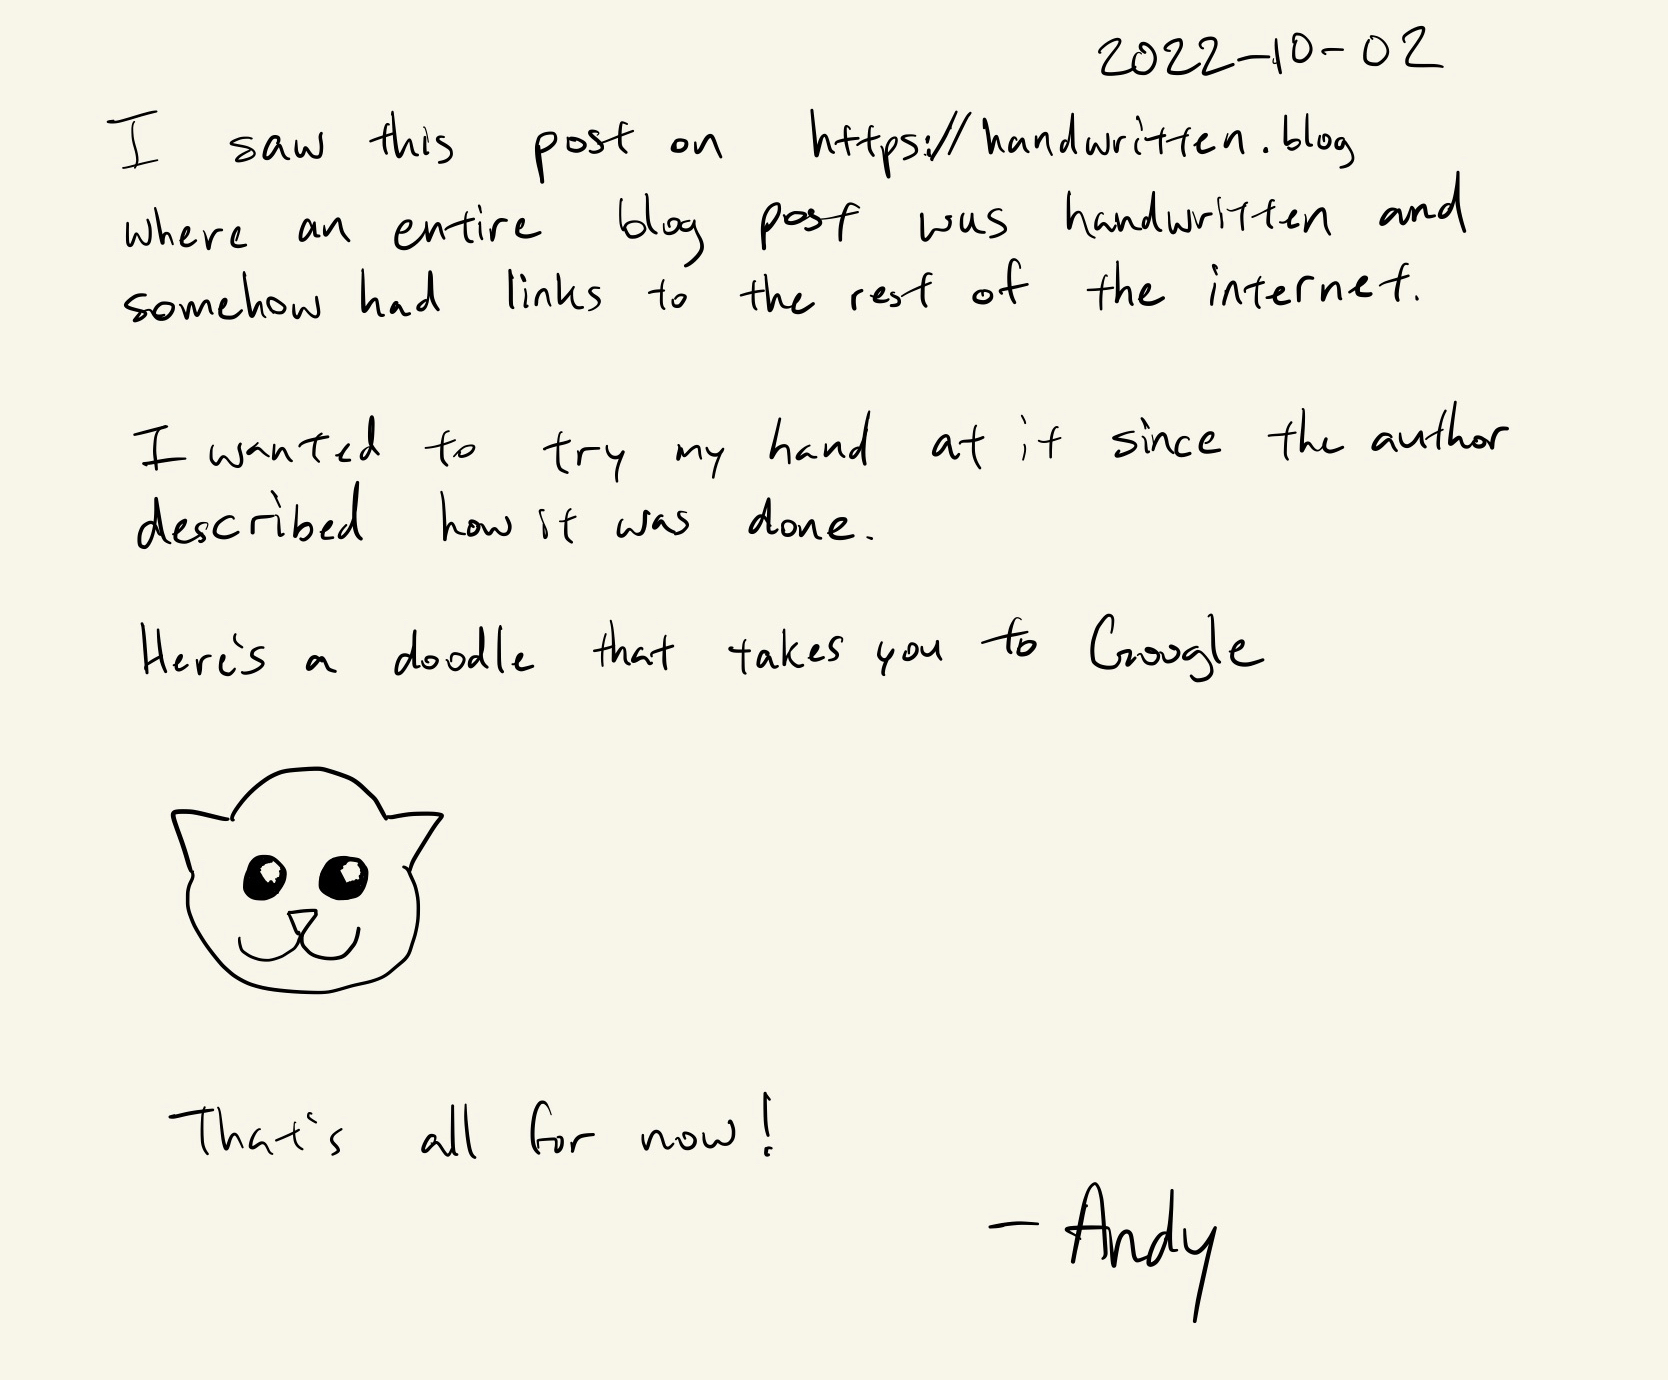 2022-10-02
I saw this post on https://handwritten.blog
where an entire blog post was handwritten and
somehow had links to the rest of the internet.
I wanted to try my hand at it since the author
described how it was done.
Here's a doodle that takes you to Google
That's all for now!
- Andy